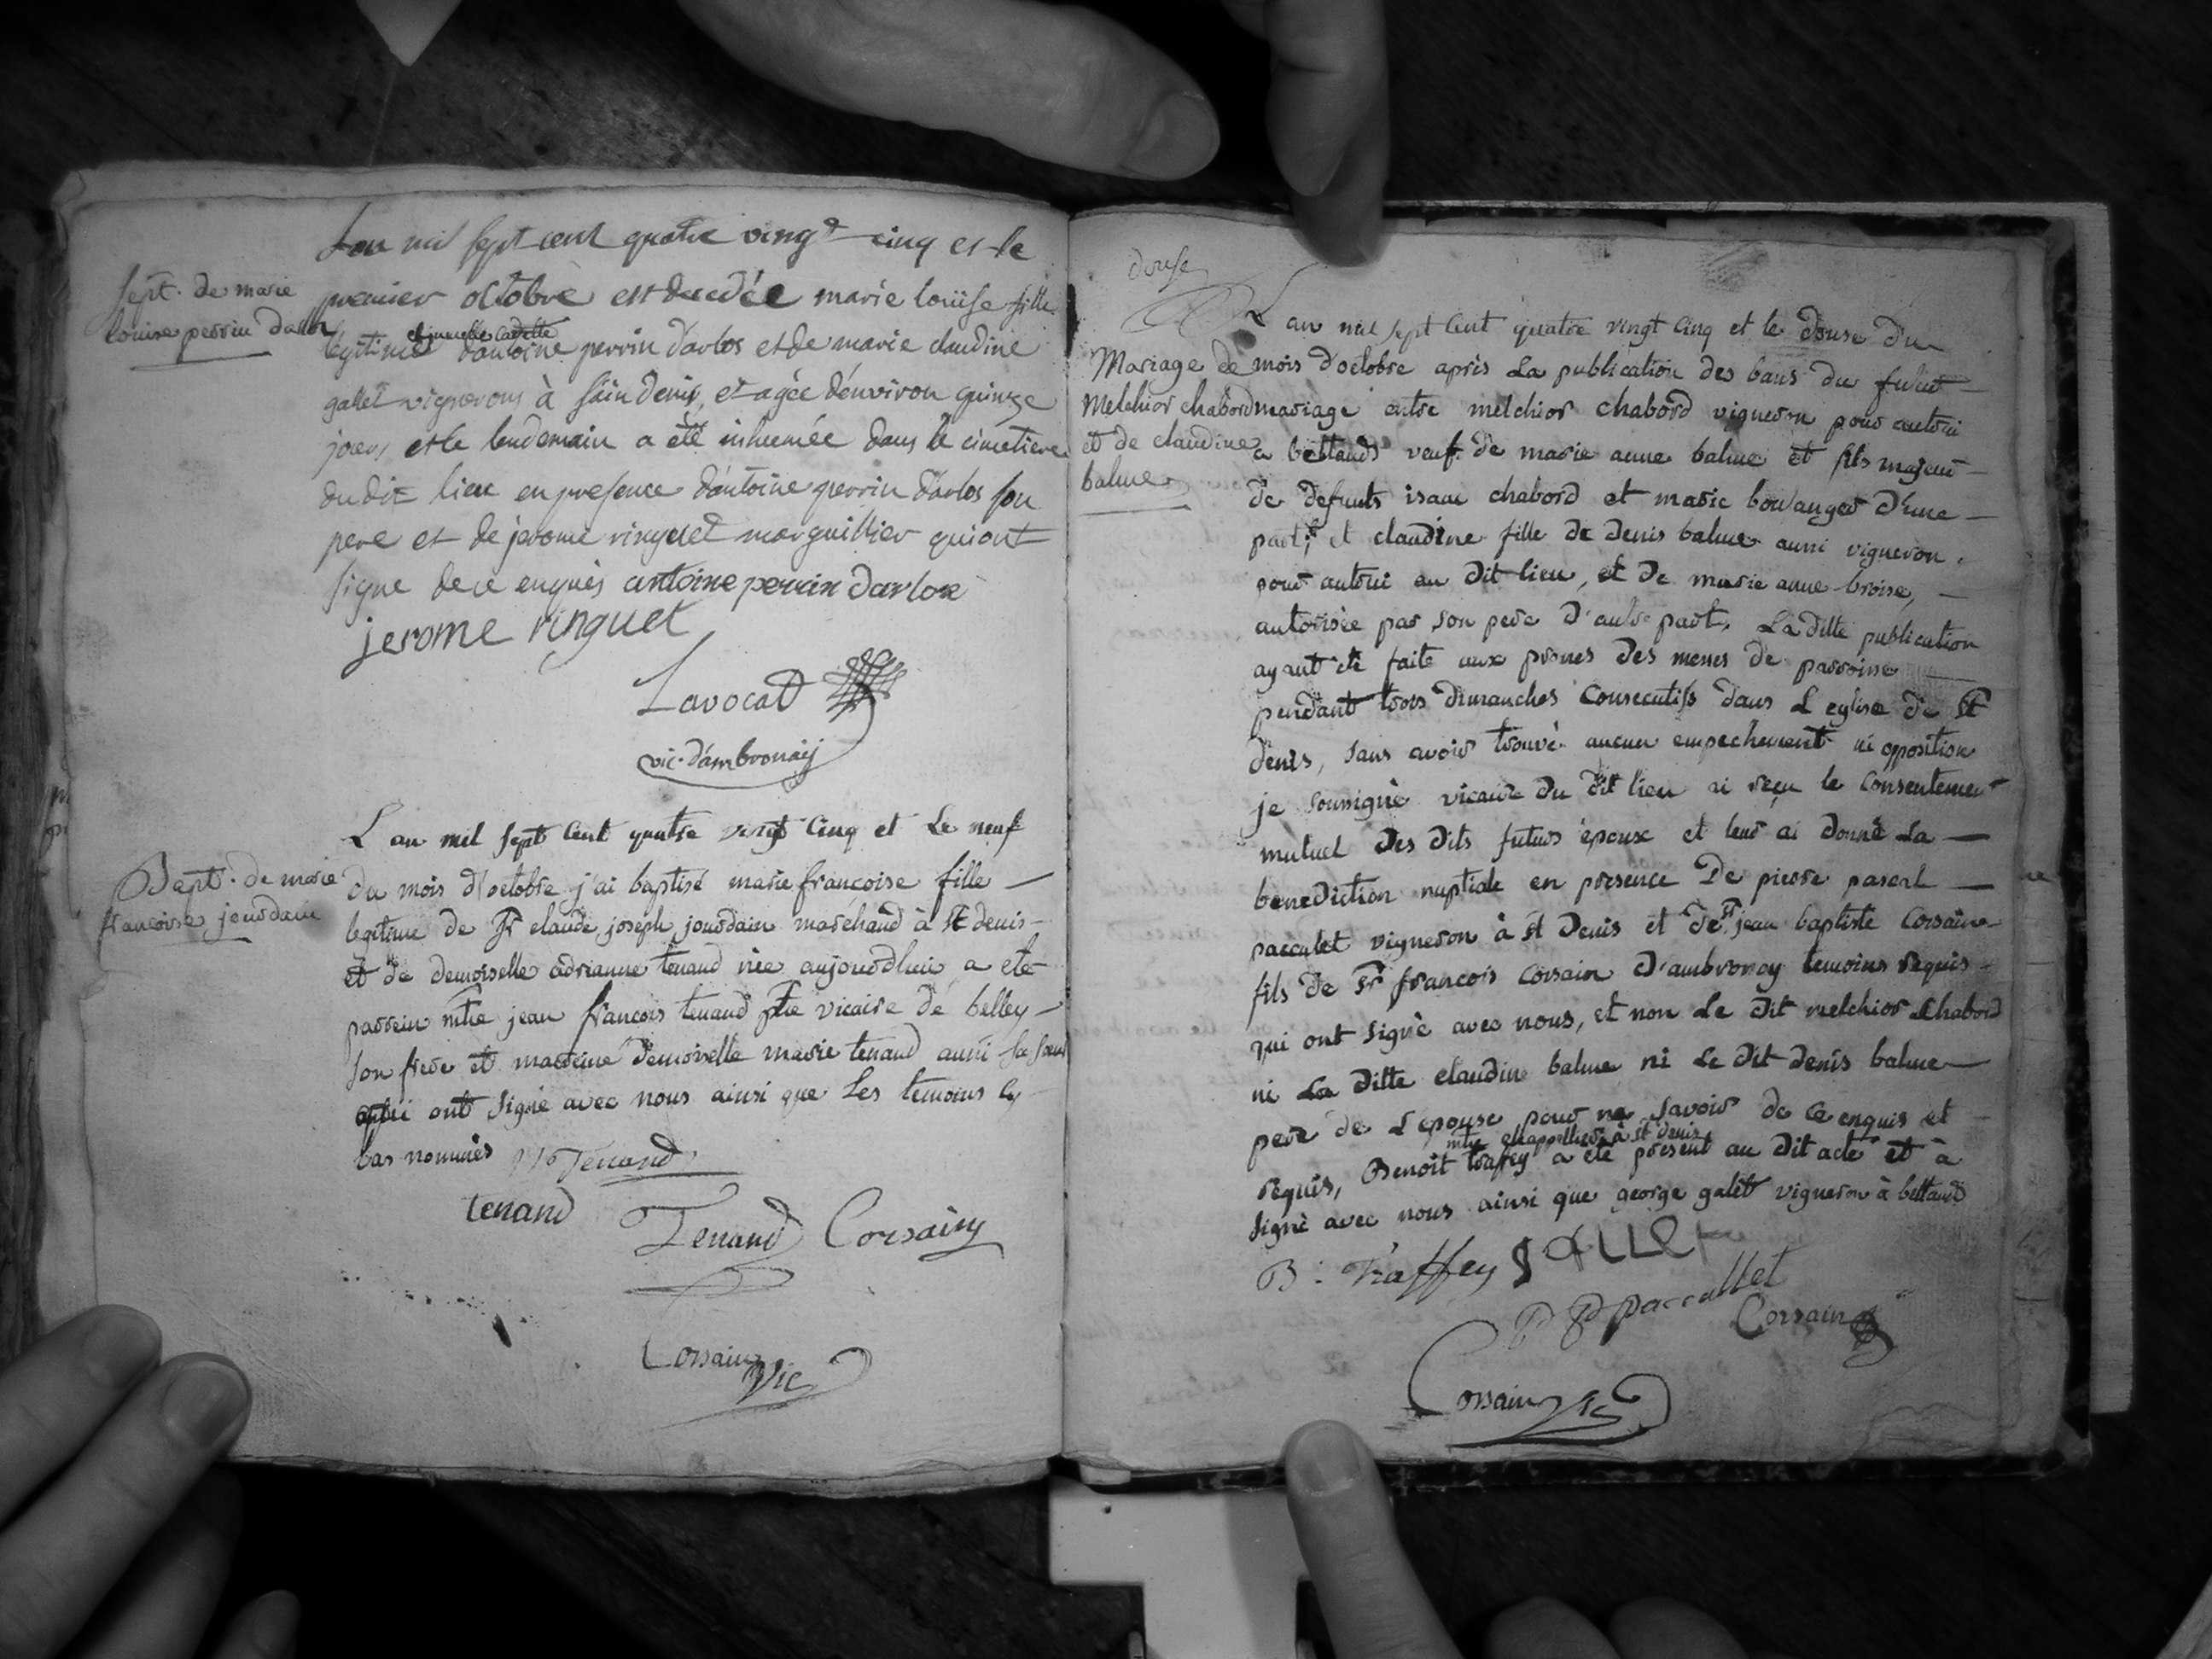 Lan mil sept cent quatre vingt cinq et le
premier octobre est decedée marie loüise fille
Sept. de marie
louise perrin darlos
et jumelle cadette
legitime d'antoine perrin d'arlos et de marie claudine
gallet vignerons à sain denis, et agée d'environ quinze
jours, et le lendemain a été inhumée dans le cimetiere
du dit lieu en presence d'antoine perrin d'arlos son
pere et de jerome ringuet marguillier qui ont
signe de ce enquis antoine perrin darlos
jerome ringuet
Lavocat
vic. d'ambronaÿ
L an mil sept cent quatre vingt cinq et Le neuf
Bapt. de marie
francoise jourdain
du mois d'octobre j'ai baptisé marie francoise fille
legitime de Sr claude joseph jourdain marchand à St denis
et de demoiselle adrianne tenand née aujourdhui, a eté
parrein mre jean francois tenand ptre vicaire de belley
son frere et marreine demoiselle marie tenand aussi sa soeur
qui ont signé avec nous ainsi que Les temoins cy
bas nommés M Tenand
tenand
Tenand Corsain
Corsain Vic
douse
L an mil sept cent quatre vingt cinq et le douse du
Mariage de
Melchior chabord
et de claudine
balme
mois d'octobre après La publication des bans du futur
mariage entre melchior chabord vigneron pour autrui
a bettand veuf de marie anne balme et fils majeur
de defunts isaac chabord et marie boulanger d'une
part, et claudine fille de denis balme aussi vigneron
pour autrui au dit lieu, et de marie anne broise,
autorisée par son pere d'autre part, La ditte publication
ayant été faite aux prones des messes de parroisse
pendant trois dimanches consecutifs dans L eglise de St
denis, sans avoir trouvé aucun empechement ni opposition
je soussigné vicaire du dit lieu ai reçu le consentement
mutuel des dits futurs epoux et leur ai donné La
benediction nuptiale en presence De pierre pascal
paccalet vigneron à St Denis et de Sr jean baptiste Corsain
fils de Sr francois corsain d'ambronay temoins requis
qui ont signé avec nous, et non Le dit melchior chabord
ni La ditte claudine balme ni Le dit denis balme
pere de L'epouse pour ne savoir de ce enquis et
mtre chappellier à St denis
requis, Benoit traffey a été present au dit acte et à
signé avec nous ainsi que george galet vigneron à bettand
B. Traffey gALLet
P P paccallet
Corsain
Corsain Vic